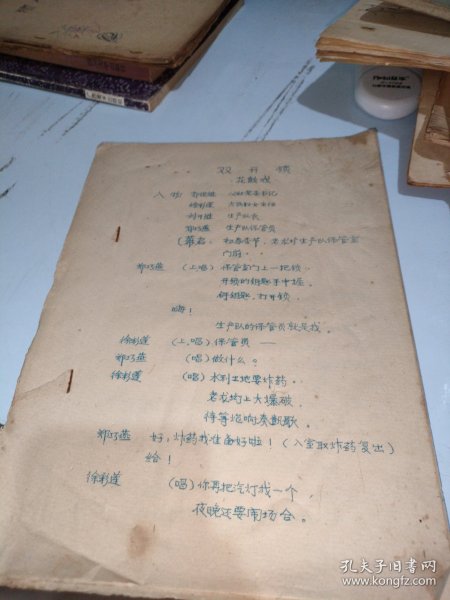 双开锁
花鼓戏
人物 郑佳雄 公社党委书记
徐彩莲 大队妇女主任
刘开雄 生产队长
郑巧燕 生产队保管员
(幕启: 初春季节,老龙坳生产队保管室
门前。
郑巧燕 (上唱) 保管室门上一把锁
开锁的钥匙手中握。
侧钥匙,打开锁
嗨!
生产队的保管员就是我。
徐彩莲 (上,唱) 保管员——
郑巧燕 (唱) 做什么?
徐彩莲 (唱) 水利工地要炸药。
老龙坳上大爆破,
待等炮响奏凯歌。
郑巧燕 好,炸药我准备好啦!(入室取炸药复出)
给!
徐彩莲 (唱) 你再把汽灯找一个,
夜晚还要闹场合。
孔夫子旧书网
www.kongfz.com